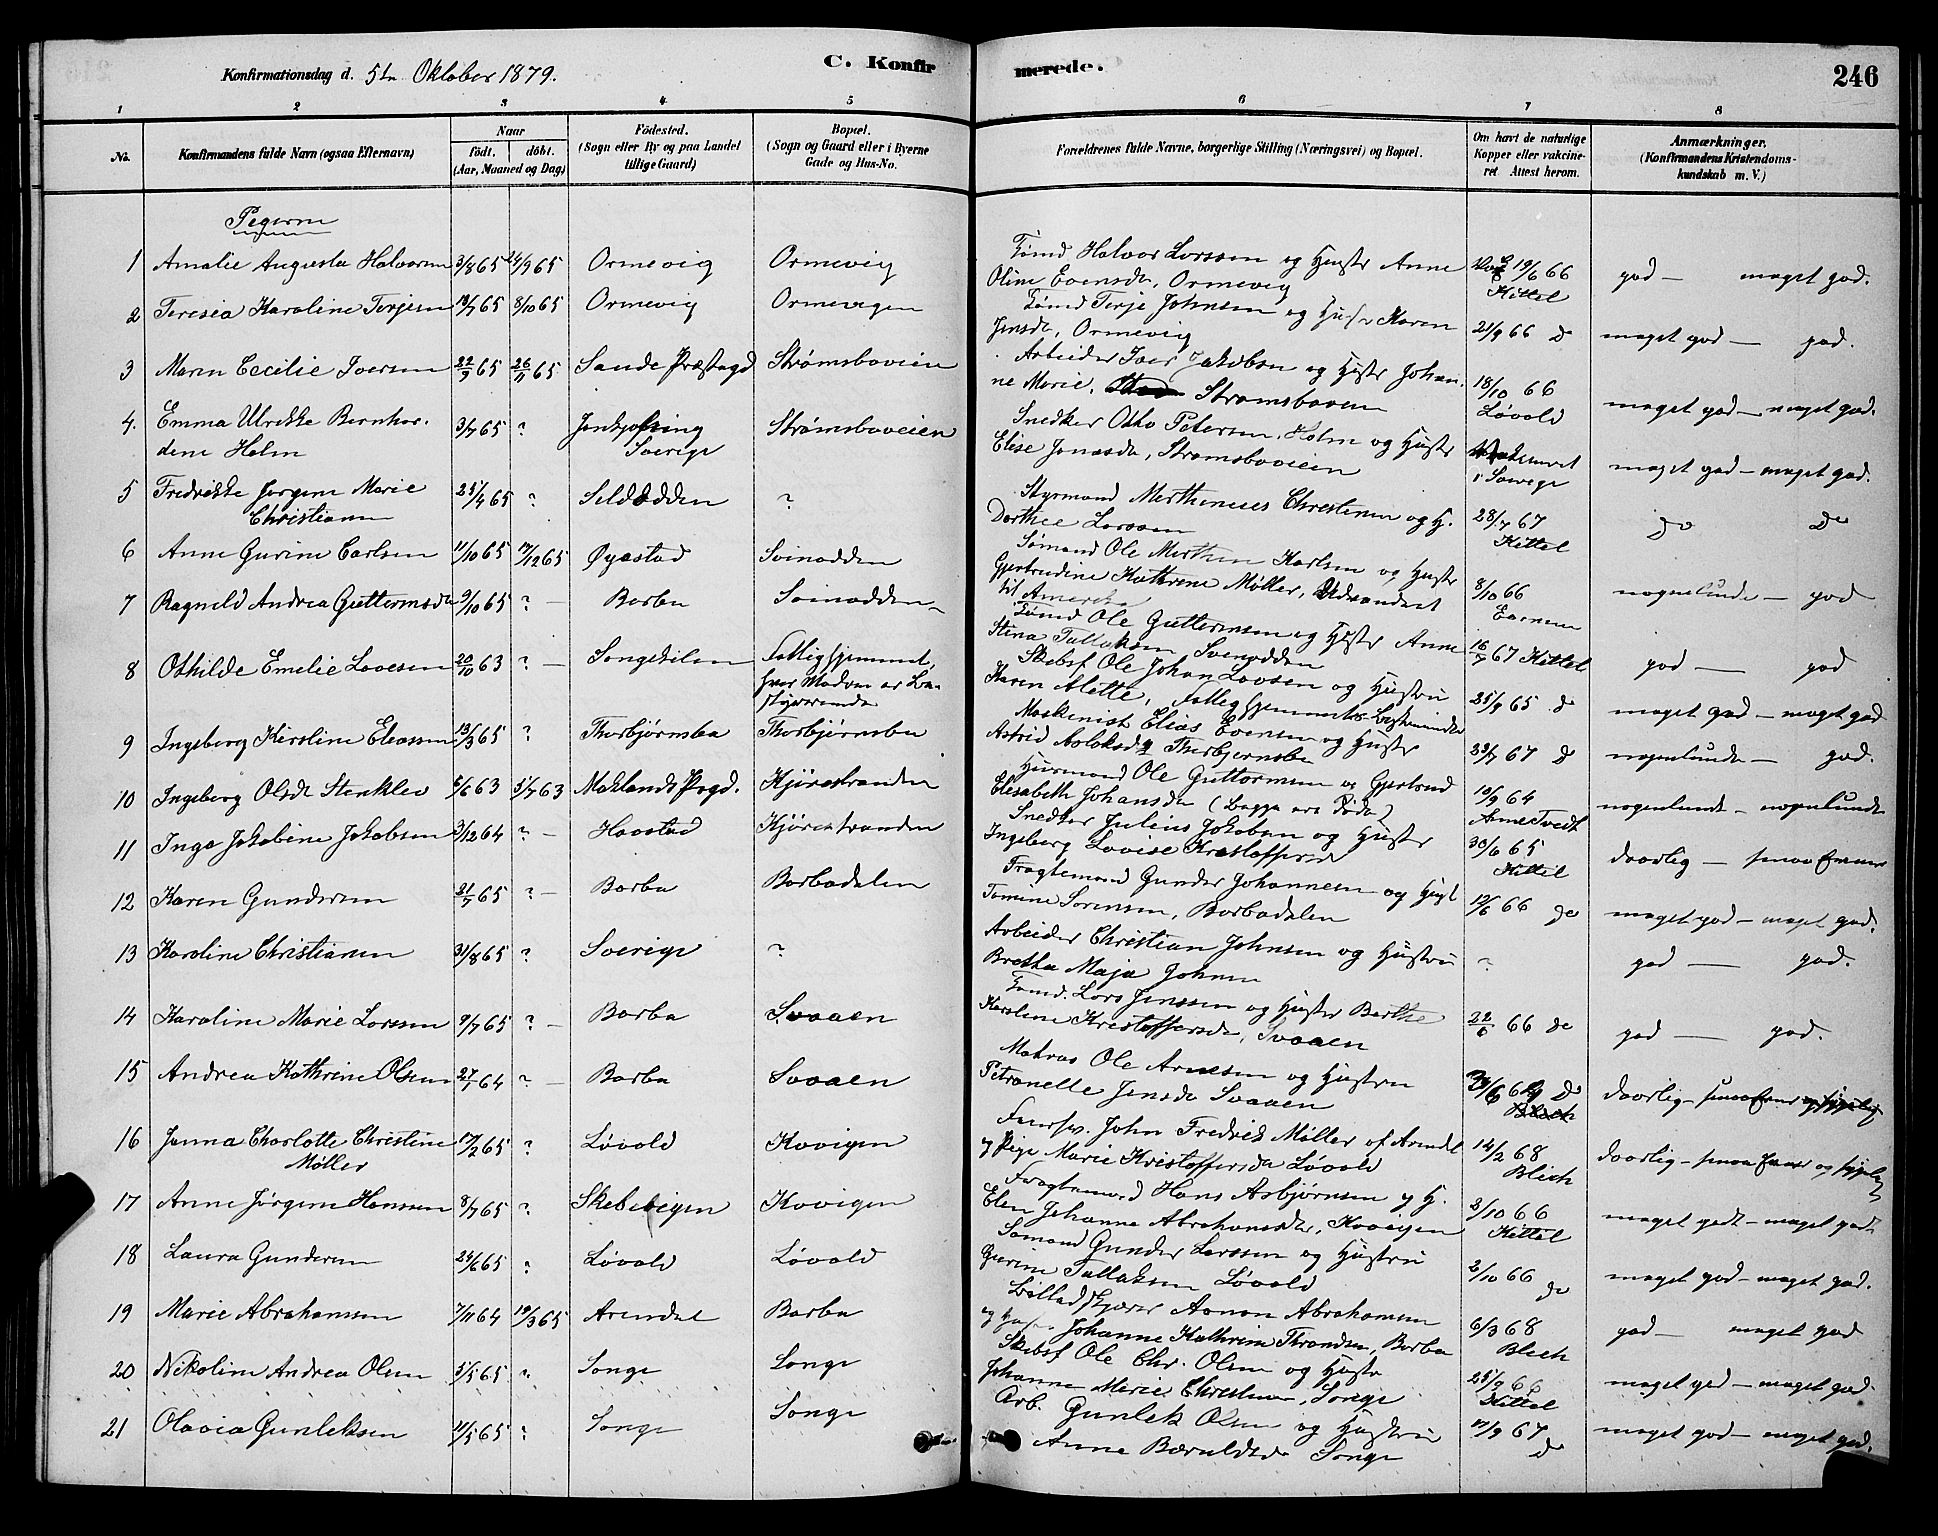 Konfirmationsdag d. 5te Oktober 1879.
C. Konfirmerede.
246
1 2 3 4 5 6 7 8
No.
Konfirmandens fulde Navn (ogsaa Efternavn)
Naar
født. døbt.
(Aar, Maaned og Dag)
Födested.
(Sogn eller By og paa Landet
tillige Gaard)
Bopæl.
(Sogn og Gaard eller i Byerne
Gade og Hus-No.
Forældrenes fulde Navne, borgerlige Stilling (Næringsvei) og Bopæl.
Om havt de naturlige
Kopper eller vakcine-
ret Attest herom.
Anmærkninger.
(Konfirmandens Kristendoms-
kundskab m. V.)
Pigerne
1 Amalie Augusta Halvorsen 3/8 65 24/9 65 Ormevig Ormevig
Sømd Halvor Larssen og Hustr Anne
Oline Evensdr, Ormevig
19/6 66
Kittel
god — meget god.
2 Teresia Karoline Terjesen 13/7 65 8/10 65 Ormevig Ormevigen
Sømd Terje Johnsen og Hustr Karen
Jensdr, Ormevig
21/9 66 do
meget god — god.
3 Maren Cecilie Iversen 22/9 65 26/11 65 Sande Præstegd Strømsboveien
Arbeider Iver Jakobsen og Hustr Johan-
ne Marie, Strømsboveien
18/10 66
Løvold
meget god — meget god.
4. Emma Ulrikke Bernhar-
dene Holm 3/7 65 ? Jonkjøbing
Sverige Strømsboveien
Snedker Otto Petersen Holm og Hustr
Elise Jonasdr, Strømsboveien
i Sverige
meget god — meget god.
5 Fredrikke Jørgine Marie
Christiansen 25/4 65 ? Sildodden ?
Styrmand Merthinius Christensen og H.
Dorthee Larssen
28/7 67
Kittel
do do
6 Anne Gurine Carlsen 11/10 65 17/12 65 Øyestad Svinodden
Sømand Ole Merthin Karlsen og Hustr
Gjertrudine Kathrine Møller, Udvandret
til Amerika
8/10 66
nogenlunde — god
7 Ragnild Andrea Guttormsdr 9/10 65 ? — Barbu Svinodden
Sømd Ole Guttormsen og Hustr Anne
Stina Tallaksen Svinodden
16/7 67 Kittel
god — god
8 Othilde Emelie Lovesen 20/10 63 ? — Songekilen Fattighjemmet,
hvor Modren er Be-
styrerinde
Skibsf Ole Johan Lovsen og Hustru
Karen Alette, Fattighjemmets Bestyrerinde
25/9 65 do
meget god — meget god
9 Ingeborg Kirstine Eliassen 13/3 65 ? Thorbjørnsbu Thorbjørnsbu
Maskinist Elias Evensen og Hustr
Astrid Aslaksdr Thorbjørnsbu
23/7 67 do
nogenlunde — god.
10 Ingeborg Olsdr Stenklev 5/6 63 5/7 63 Moklands Prgd. Kjørestranden
Huusmand Ole Guttormsen og Gjertrud
Elisabeth Johansdr (Begge ere Døde)
10/9 64
Arne Tvedt
nogenlunde — nogenlunde
11 Inga Jakobine Jakobsen 3/12 64 ? — Haastad Kjørestranden
Snedker Julius Jakobsen og Hustr
Ingeborg Lovise Kristoffersdr
30/6 65
Kittel
daarlig — smaa Evner
12 Karen Gundersen 21/7 65 ? — Barbu Barbudalen
Fragtemand Gunder Johannesen og Hust
Tomine Sørensen, Barbudalen
12/6 66 do
meget god — meget god.
13 Karoline Christiansen 31/8 65 ? Sverige ?
Arbeider Christian Johnsen og Hustru
Bretha Maja Johnsen
?
god — god.
14 Karoline Marie Larssen 9/7 65 ? — Barbu Svaaen
Sømd. Lars Jenssen og Hustr Berthe
Karoline Kristoffersdr, Svaaen
22/6 66 do
god — god.
15 Andrea Kathrine Olsen 27/7 64 ? — Barbu Svaaen
Matros Ole Arnesen og Hustru
Petronelle Jensdr Svaaen
do
Blich
daarlig — smaa Evner
16 Janna Charlotte Christine
Møller 17/2 65 ? Løvold Kovigen
John Fredrik Møller af Arendal
og Pige Marie Kristoffersdr Løvold
14/2 68
Blich
daarlig — smaa Evner og
17 Anne Jørgine Hanssen 8/7 65 ? Skibvigen Kovigen
Fragtemand Hans Asbjørnsen og H.
Elen Johanne Abrahamsdtr, Kovigen
2/10 66
Kittel
meget godt — meget godt
18 Laura Gundersen 24/6 65 ? Løvold Løvold
Sømand Gunder Larssen og Hustru
Gurine Tallaksen Løvold
2/10 66
do
meget god — meget god.
19 Marie Abrahamsen 7/11 64 19/3 65 Arendal Barbu
Aanon Abrahamsen
og Hustr Johanne Kathrine Throndsen, Barbu
6/3 68
Blich
god — meget god
20 Nikoline Andrea Olsen 5/5 65 ? Songe Songe
Skibsf Ole Chr. Olsen og Hustr
Johanne Marie Christensen, Songe
25/9 66
Kittel
meget god — meget god.
21 Olavia Gunleksen 11/5 65 ? Songe Songe
Arb. Gunlek Olsen og Hustru
Anne Bærulfsdr Songe
17/9 67
do
meget god — meget god.